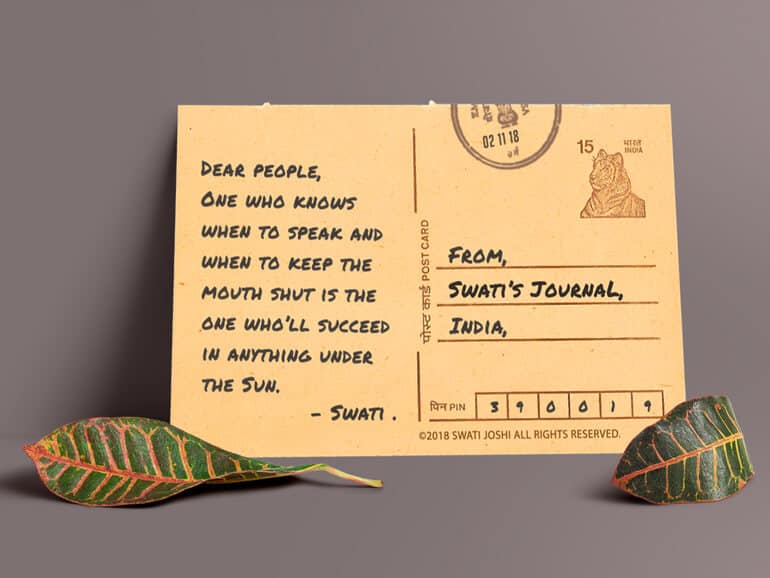 DEAR PEOPLE,
ONE WHO KNOWS
WHEN TO SPEAK AND
WHEN TO KEEP THE
MOUTH SHUT IS THE
ONE WHO'LL SUCCEED
IN ANYTHING UNDER
THE SUN.
- SWATI.
पोस्ट कार्ड POST CARD
02 11 18
15
भारत
INDIA
FROM,
SWATI'S JOURNAL,
INDIA,
पिन PIN 3 9 0 0 1 9
©2018 SWATI JOSHI ALL RIGHTS RESERVED.